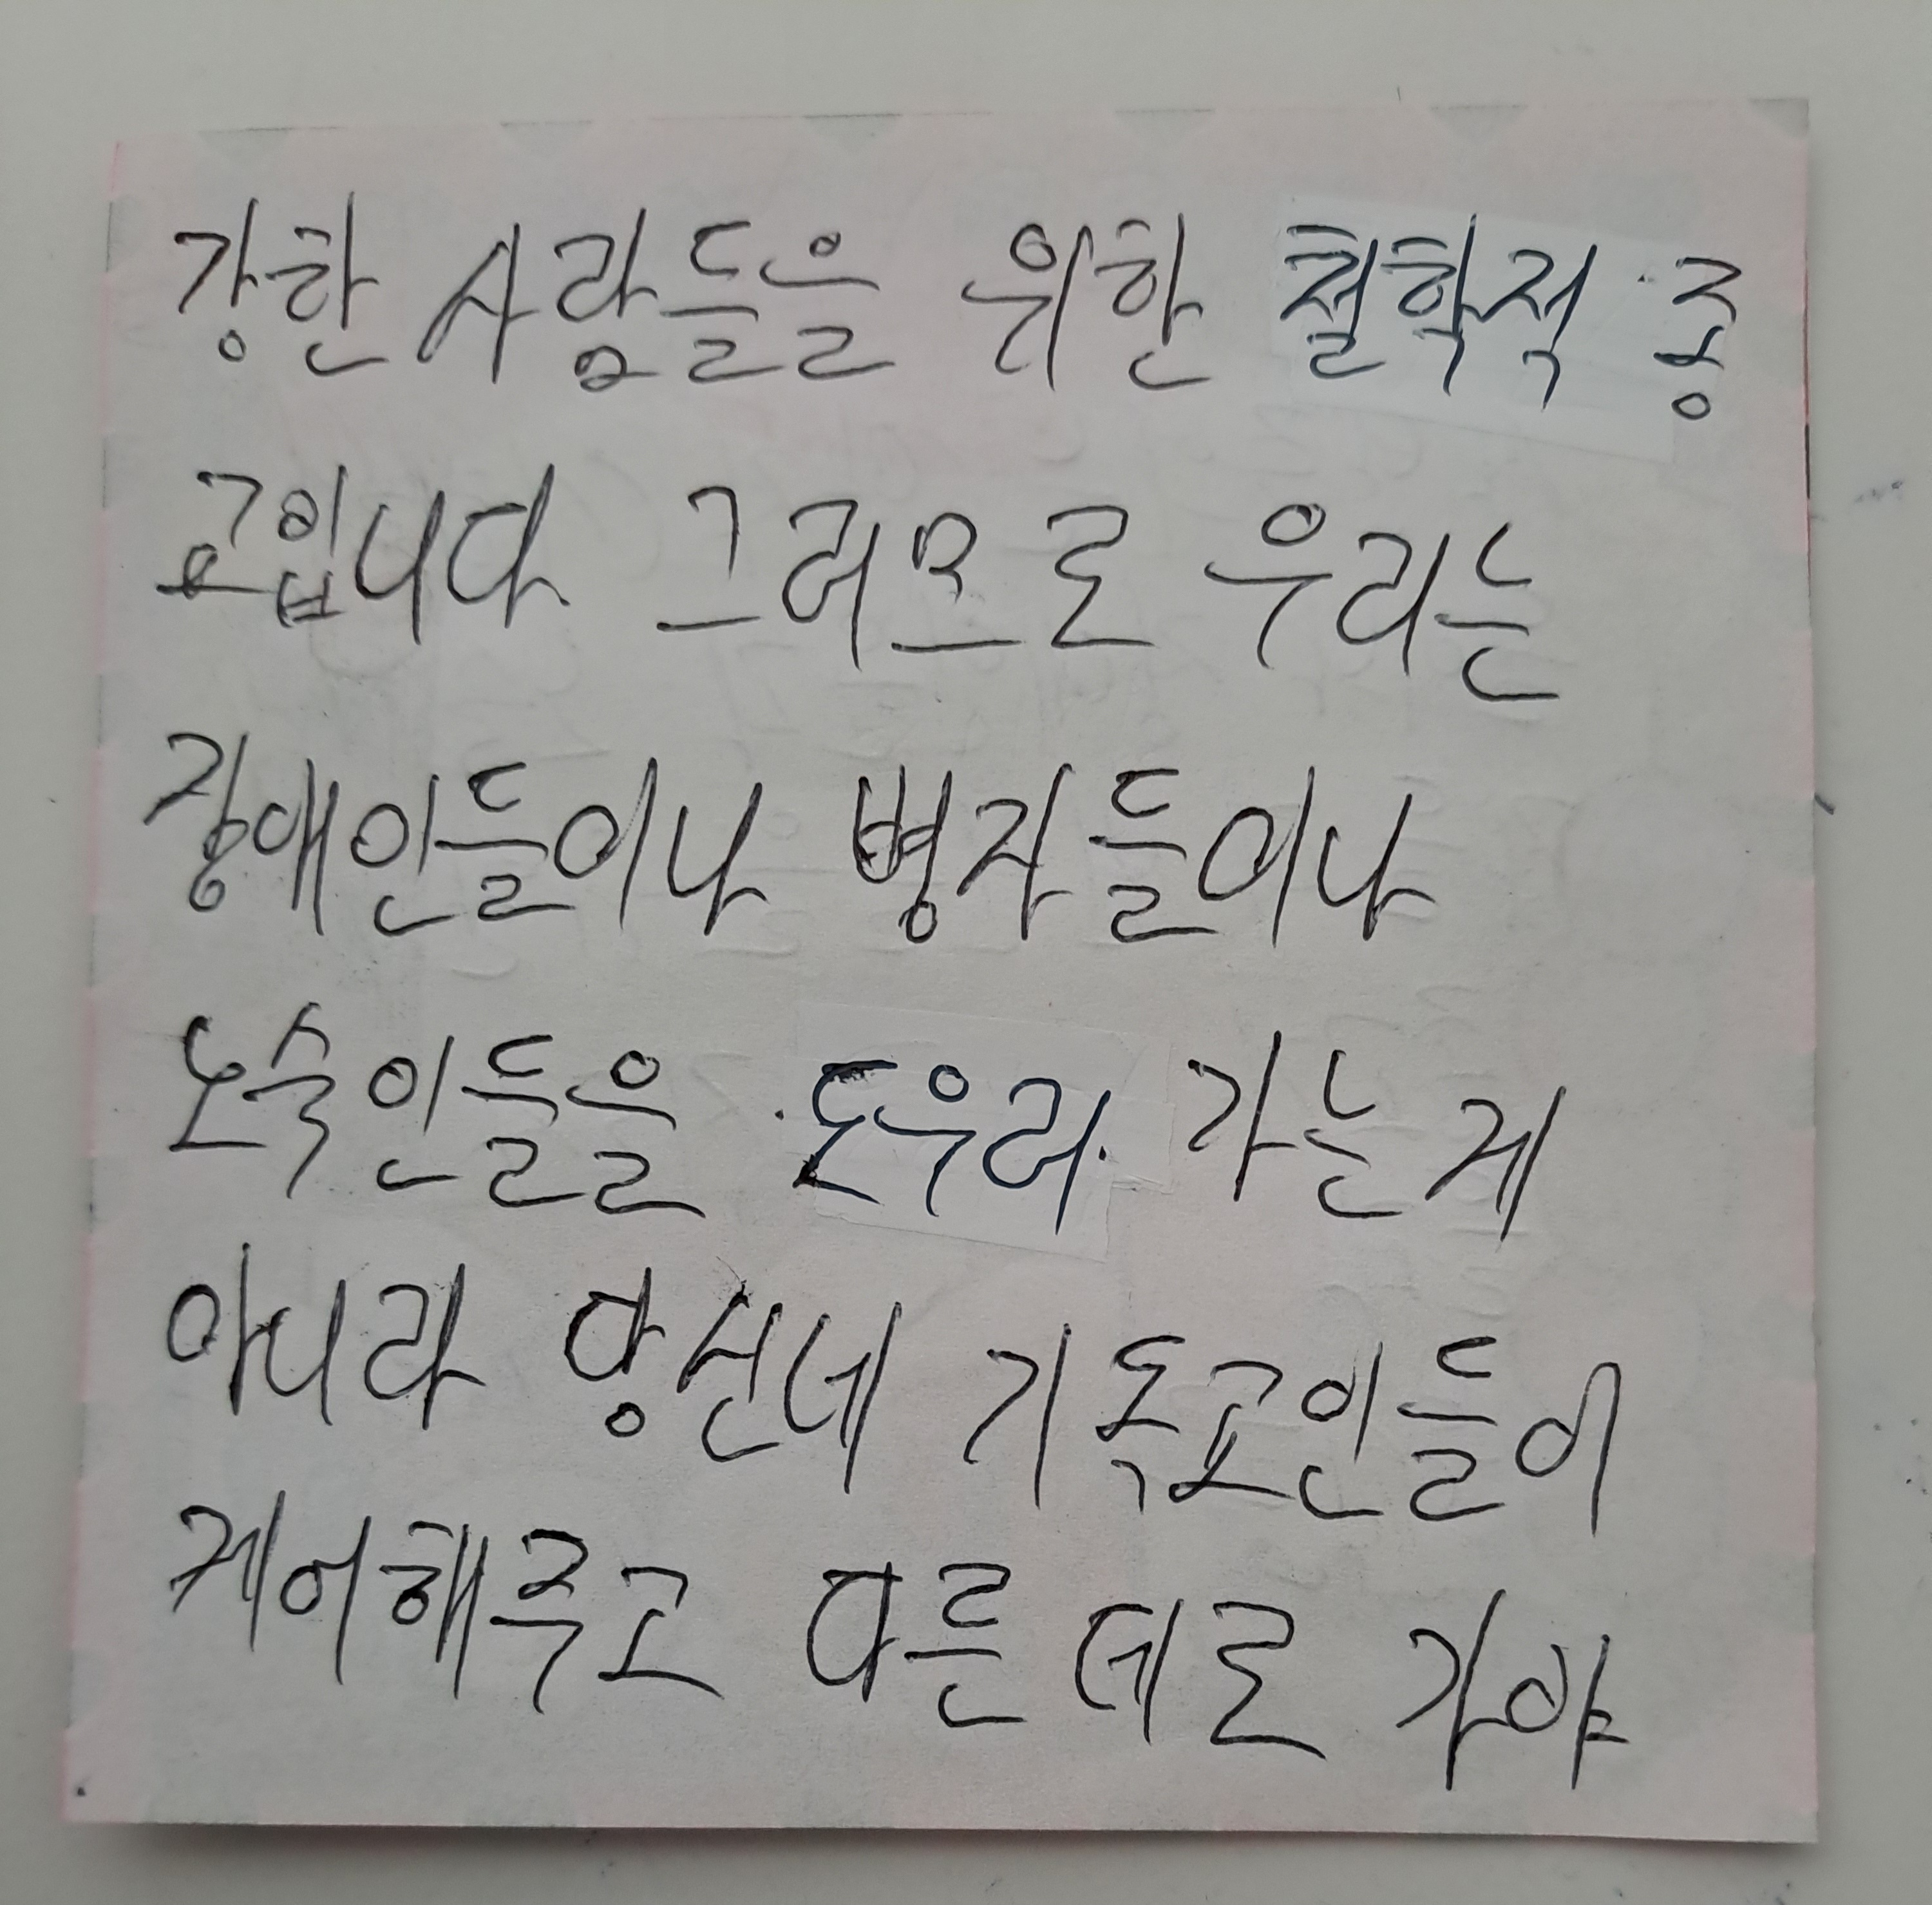 강한 사람들을 위한 철학적 종
교입니다 그러므로 우리는
장애인들이나 병자들이나
노숙인들을 도우러 가는게
아니라 당신네 기독교인들이
케어해주고 다른 데로 가야